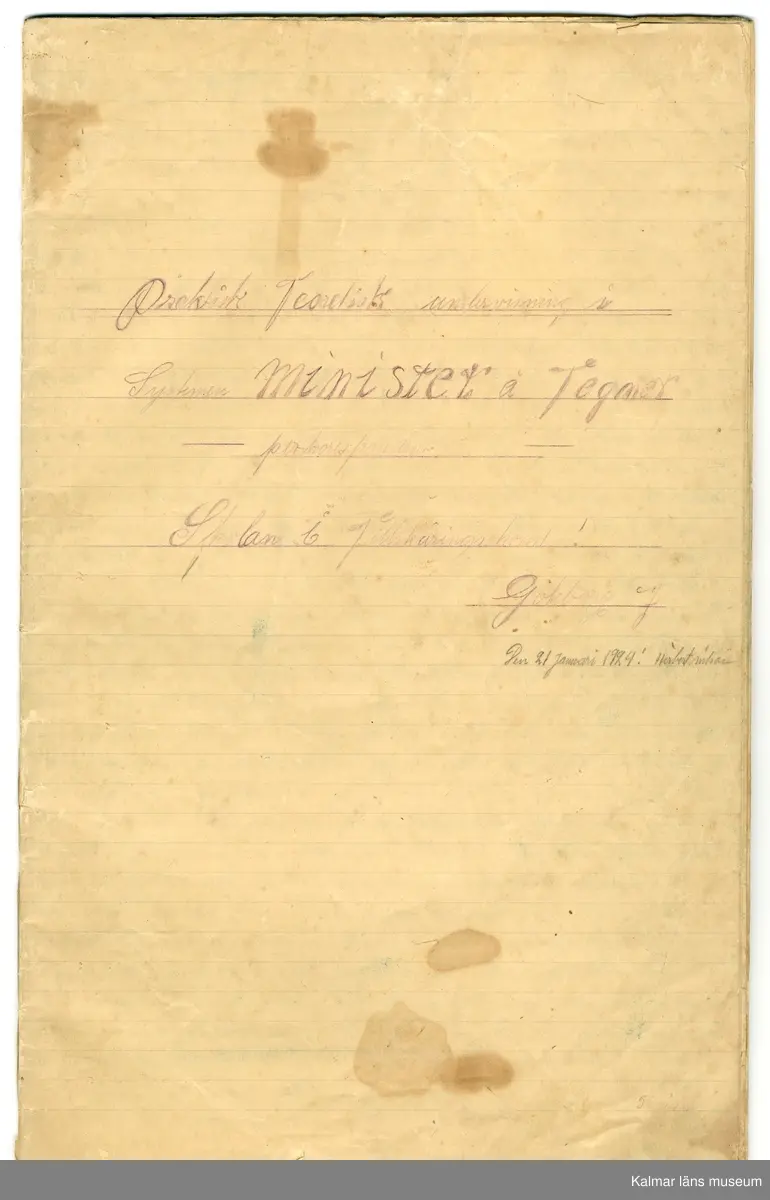 Praktisk Teoretisk undervisning i
Systmen Minister á Tegner
Skolan i Tillskäringskonst!
Den 21 Januari 1924!
Kalmar läns museum